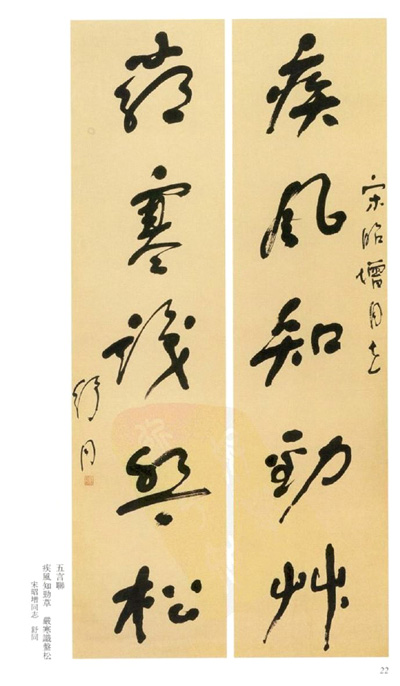 宋昭增同志
疾风知勁艸
嚴寒識盤松
舒同
五言聯
疾風知勁草　嚴寒識盤松
宋昭增同志　舒同
22